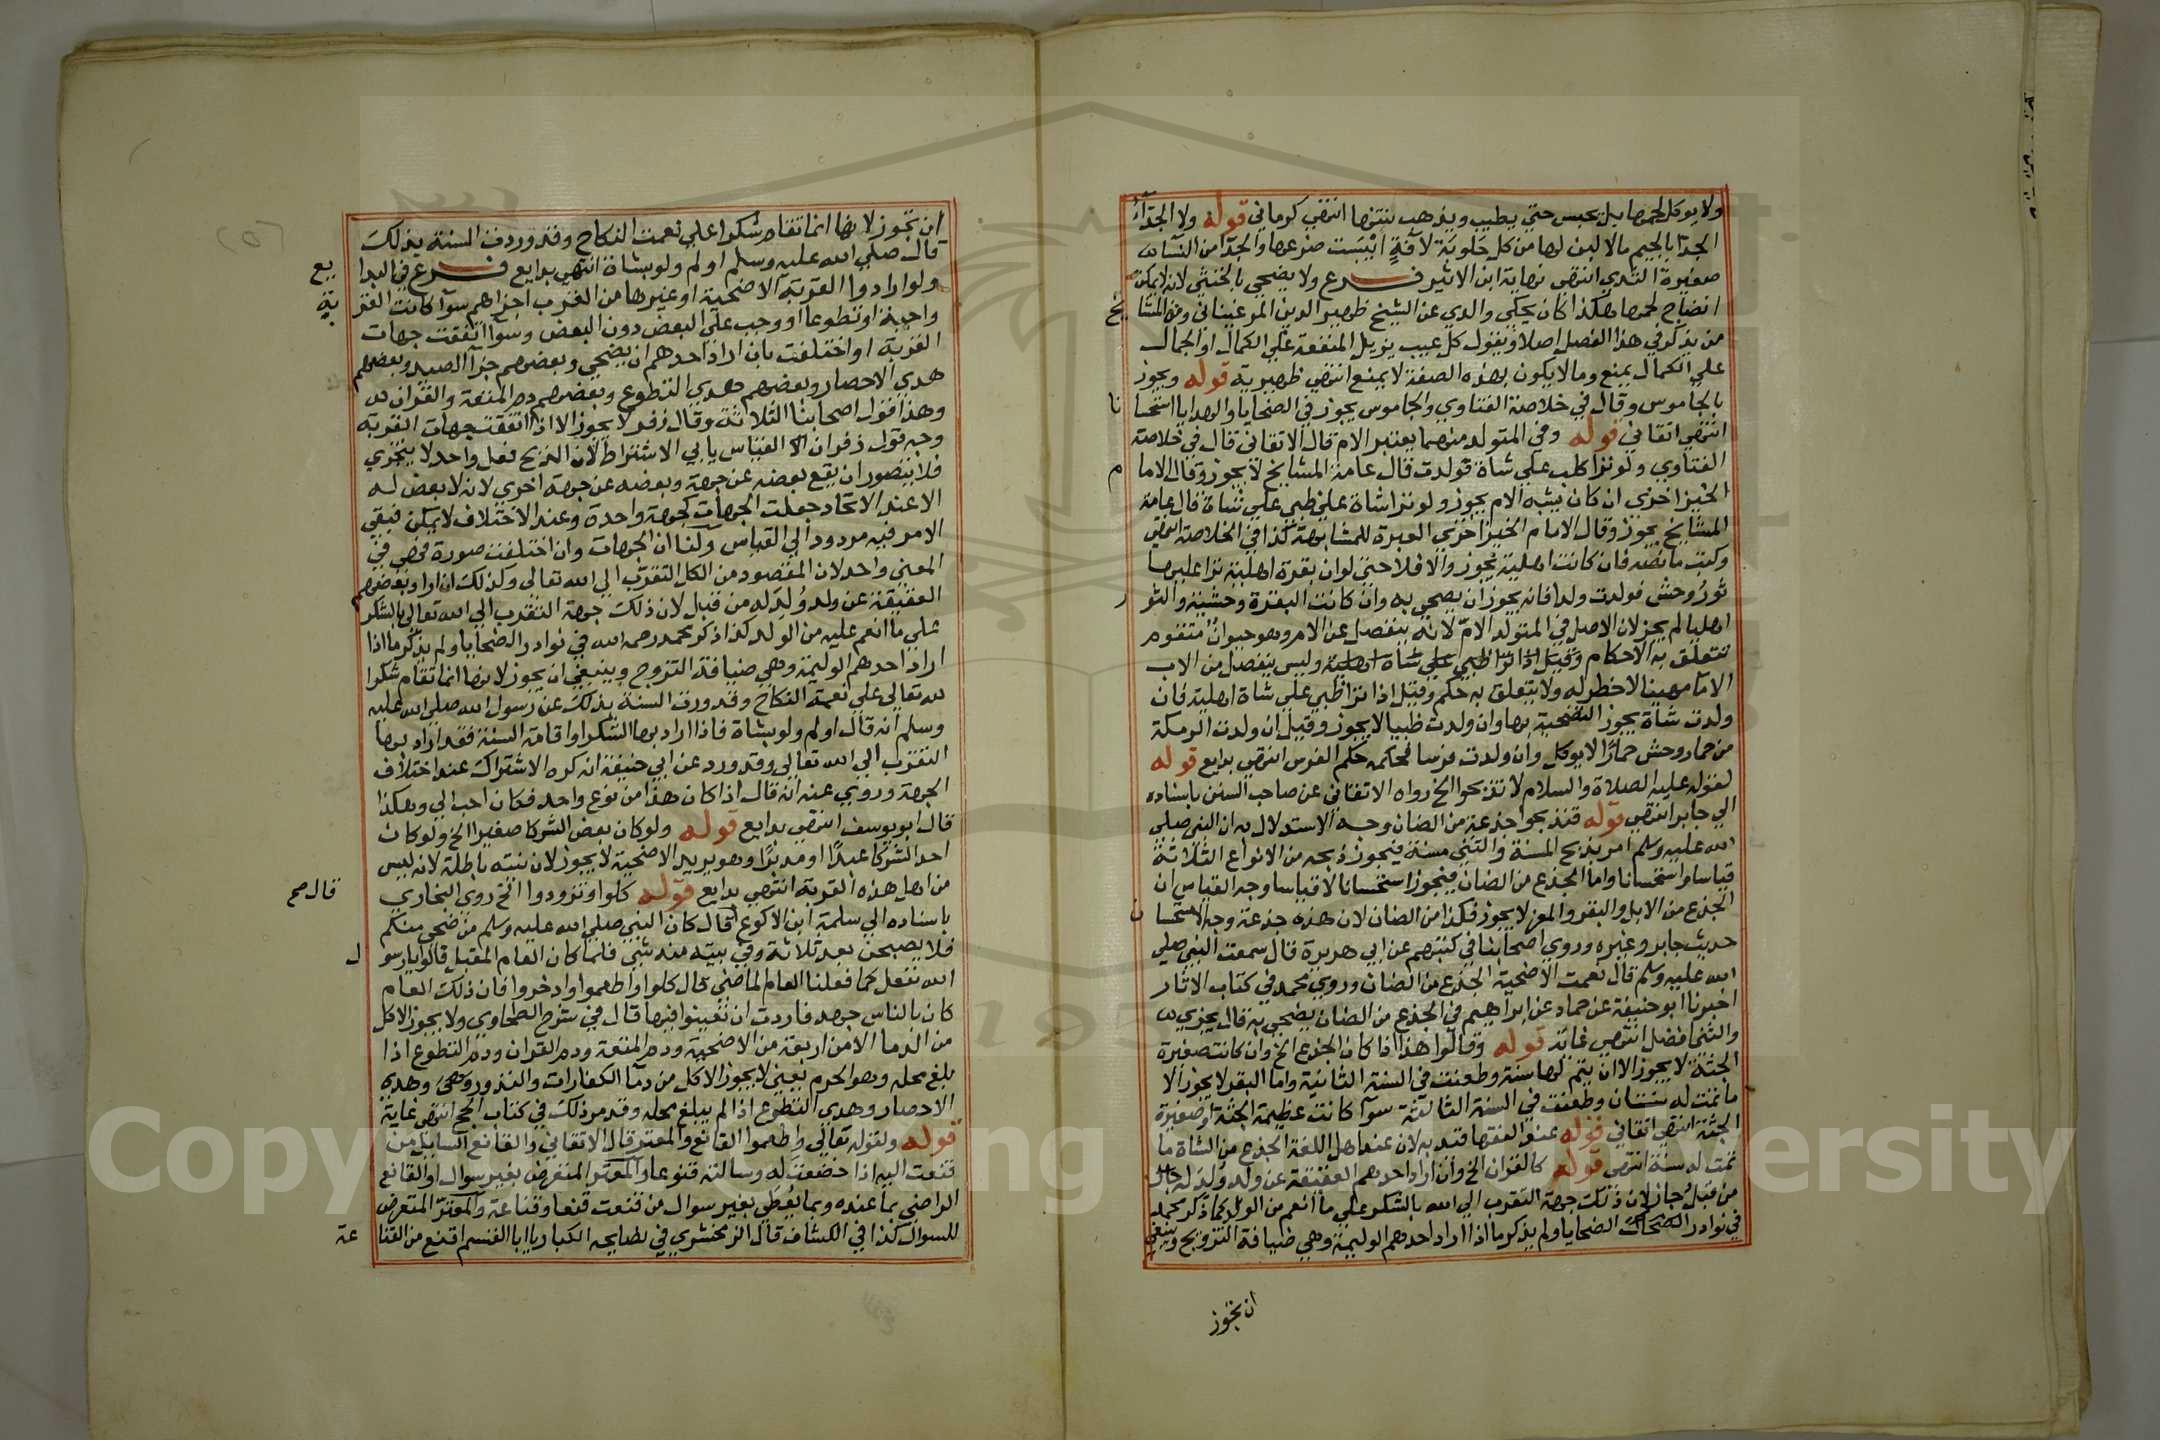 ولا يوكل لحمها بل يحبس حتى يطيب ويذهب نتنها انتهى كرماني قوله ولا الجذاء
الجذا بالجيم مالا لبن لها من كل حلوبة لآفة ايبست ضرعها والجدا من النسا
صغيرة الثدي انتهى نهاية ابن الاثير فرع ولا يضحي بالخنثى لانه لا يمكن
انضاج لحمها هكذا كان يحكى والدي عن الشيخ ظهير الدين المرغيناني ومن المشايخ
من يذكر في هذا الفصل اصلا ويقول كل عيب يزيل المنفعة على الكمال او الجمال
على الكمال يمنع ومالا يكون بهذه الصفة لا يمنع انتهى ظهيرية قوله ويجوز
بالجاموس وقال في خلاصة الفتاوي والجاموس يجوز في الضحايا والهدايا استحسانا
انتهى اتقاني قوله وفي المتولد منهما يعتبر الام قال الاتقاني قال في خلاصة
الفتاوي ولو نزا كلب على شاة فولدت قال عامة المشايخ لا يجوز وقال الامام
الخيزاخزي ان كان يشبه الام يجوز ولو نزا شاة على ظبي على شاة قال عامة
المشايخ يجوز وقال الامام الخيزاخزي العبرة للمشابهة كذا في الخلاصة انتهى
وكتب ما نصه فان كانت اهلية يجوز والا فلا حتى لو ان بقرة اهلية نزا عليها
ثور وحش فولدت ولدا فانه يجوز ان يضحي به وان كانت البقرة وحشية والثور
اهليا لم يجز لان الاصل في المتولد الام لانه ينفصل عن الام وهو حيوان متقوم
تتعلق به الاحكام وقيل اذا نزا ظبي على شاة اهلية وليس ينفصل من الاب
الا ماء مهينا لا خطر له ولا يتعلق به حكم وقيل اذا نزا ظبي على شاة اهلية فان
ولدت شاة يجوز التضحية بها وان ولدت ظبيا لا يجوز وقيل ان ولدت الرمكة
من حمار وحش حمارا لا يوكل وان ولدت فرسا فحكمه حكم الفرس انتهى بدايع قوله
لقوله عليه الصلاة والسلام لا تذبحوا الخ رواه الاتقاني عن صاحب السنن باسناده
الى جابر انتهى قوله فتذبحوا جذعة من الضان وجه الاستدلال به ان النبي صلى
الله عليه وسلم امر بذبح المسنة والثني مسنة فيجوز ذبحه من الانواع الثلاثة
قياسا واستحسانا واما الجذع من الضان فيجوز استحسانا لا قياسا وجه القياس ان
الجذع من الابل والبقر والمعز لا يجوز فكذا من الضان لان هذه جذعة وجه الاستحسان
حديث جابر وغيره وروي اصحابنا في كتبهم عن ابي هريرة قال سمعت النبي صلى
الله عليه وسلم قال نعمت الاضحية الجذع من الضان وروي محمد في كتاب الاثار
اخبرنا ابو حنيفة عن حماد عن ابراهيم في الجذع من الضان يضحي به قال يجزي
والثني افضل انتهى غاية قوله وقالوا هذا اذا كان الجذع الخ وان كانت صغيرة
الجثة لا يجوز الا ان يتم لها سنة وطعنت في السنة الثانية واما البقر لا يجوز الا
ما تمت له سنتان وطعنت في السنة الثالثة سوآ كانت عظيمة الجثة او صغيرة
الجثة انتهى اتقاني قوله عند الفقها قيد به لان عند اهل اللغة الجذع من الشاة ما
تمت له سنة انتهى قوله كالقران الخ وان اراد احدهم العقيقة عن ولد ولد له
من قبل جاز لان ذلك جهة التقرب الى الله بالشكر على ما انعم من الولد كما ذكر محمد
في نوادر الضحايا ولم يذكر ما اذا اراد احدهم الوليمة وهي ضيافة التزويج وينبغي
ان يجوز
ان تجوز لانها انما تقام شكرا على نعمت النكاح وقد وردت السنة بذلك
قال صلى الله عليه وسلم اولم ولو بشاة انتهى بدايع فرع في البدايع
ولو ارادوا القربة الاضحية او غيرها من القرب اجزاهم سوآ كانت القربة
واجبة او تطوعا او وجب على البعض دون البعض وسوآ اتفقت جهات
القربة او اختلفت بان اراد احدهم ان يضحي وبعضهم جزآ الصيد وبعضهم
هدي الاحصار وبعضهم هدي التطوع وبعضهم دم المتعة والقران
وهذا قول اصحابنا الثلاثة وقال زفر لا يجوز الا اذا اتفقت جهات القربة
وجه قول زفر ان القياس يابي الاشتراط لان الذبح فعل واحد لا يتجزي
فلا يتصور ان يقع بعضه عن جهة وبعضه عن جهة اخري لانه لا بعض له
الا عند الاتحاد جعلت الجهات كجهة واحدة وعند الاختلاف لا يمكن فبقي
الامر فيه مردود الى القياس ولنا ان الجهات وان اختلفت صورة فهي في
المعنى واحد لان المقصود من الكل التقرب الى الله تعالى وكذلك ان اراد بعضهم
العقيقة عن ولد ولد له من قبل لان ذلك جهة التقرب الى الله تعالى بالشكر
على ما انعم عليه من الولد كذا ذكر محمد رحمه الله في نوادر الضحايا ولم يذكر ما اذا
اراد احدهم الوليمة وهي ضيافة التزوج وينبغي ان يجوز لانها انما تقام شكرا
لله تعالى على نعمة النكاح وقد وردت السنة بذلك عن رسول الله صلى الله عليه
وسلم انه قال اولم ولو بشاة فاذا اراد بها الشكر او اقامة السنة فقد اراد بها
التقرب الى الله تعالى وقد ورد عن ابي حنيفة انه كره الاشتراك عند اختلاف
الجهة وروي عنه انه قال اذا كان هذا من نوع واحد فكان احب الي وهكذا
قال ابو يوسف انتهى بدايع قوله ولو كان بعض الشركا صغيرا الخ ولو كان
احد الشركا عبدا او مدبرا وهو يريد الاضحية لا يجوز لان نيته باطلة لانه ليس
من اهل هذه القربة انتهى بدايع قوله كلوا وتزودوا الخ روى البخاري
باسناده الى سلمة ابن الاكوع قال كان النبي صلى الله عليه وسلم من ضحى منكم
قال صح
فلا يصبحن بعد ثلاثة وفي بيته منه شيء فلما كان العام المقبل قالوا يا رسول
الله نفعل كما فعلنا العام الماضي قال كلوا واطعموا وادخروا فان ذلك العام
كان بالناس جهد فاردت ان تعينوا فيها قال في شرح الطحاوي ولا يجوز الاكل
من الدما الا من اربعة من الاضحية ودم المتعة ودم القران ودم التطوع اذا
بلغ محله وهو الحرم يعني لا يجوز الاكل من دمآ الكفارات والنذور وهدي
الاحصار وهدي التطوع اذا لم يبلغ محله وقد مر ذلك في كتاب الحج انتهى غاية
قوله ولقوله تعالى واطعموا القانع والمعتر قال الاتقاني والقانع السايل من
قنعت اليه اذا خضعت له وسالته قنوعا والمعتر المتعرض بغير سوال او القانع
الراضي بما عنده وبما يعطى بغير سوال من قنعت قنعا وقناعة والمعتر المتعرض
للسوال كذا في الكشاف قال الزمخشري في نصايحه الكبار يا ابا القسم اقنع من القناعة
Copy ing University